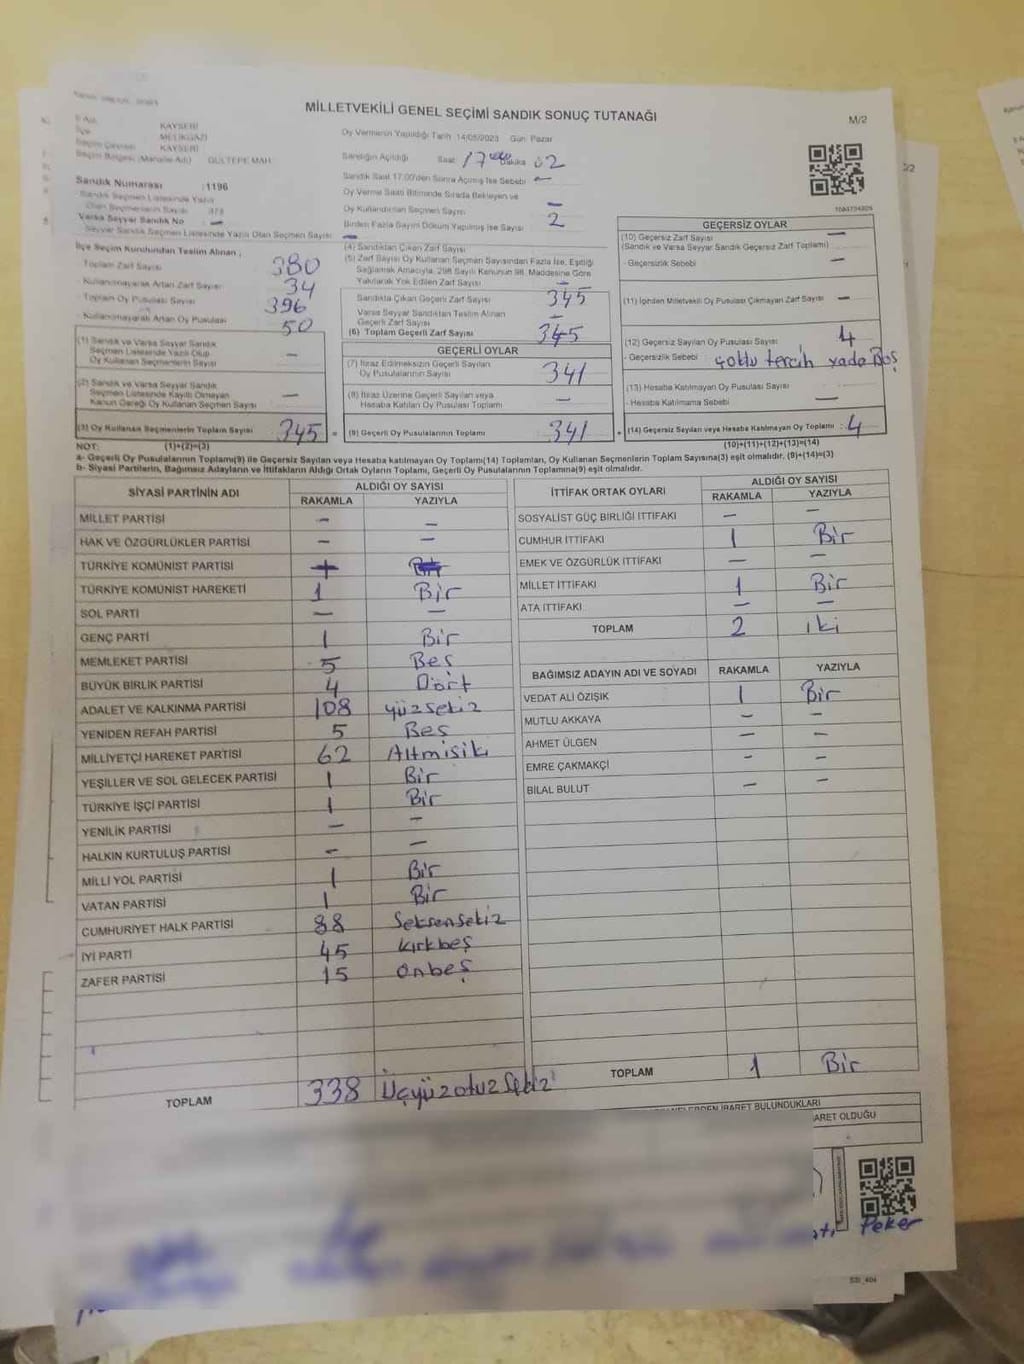 MİLLETVEKİLİ GENEL SEÇİMİ SANDIK SONUÇ TUTANAĞI
M/2
KAYSERİ
İlçe MELİKGAZİ
Seçim Çevresi KAYSERİ
Seçim Bölgesi (Mahalle Adı) GÜLTEPE MAH.
Sandık Numarası :1196
Sandık Seçmen Listesinde Yazılı
Olan Seçmenlerin Sayısı 373
Varsa Seyyar Sandık No —
Seyyar Sandık Seçmen Listesinde Yazılı Olan Seçmen Sayısı —
Oy Vermenin Yapıldığı Tarih 14/05/2023 Gün: Pazar
Sandığın Açıldığı Saat 17 Dakika 02
Sandık Saat 17:00'den Sonra Açılmış İse Sebebi —
Oy Verme Saati Bitiminde Sırada Bekleyen ve
Oy Kullandırılan Seçmen Sayısı —
Birden Fazla Sayım Döküm Yapılmış ise Sayısı 2
İlçe Seçim Kurulundan Teslim Alınan ;
- Toplam Zarf Sayısı 380
- Kullanılmayarak Artan Zarf Sayısı 34
- Toplam Oy Pusulası Sayısı 396
- Kullanılmayarak Artan Oy Pusulası 50
(1) Sandık ve Varsa Seyyar Sandık
Seçmen Listesinde Yazılı Olup
Oy Kullanan Seçmenlerin Sayısı —
(2) Sandık ve Varsa Seyyar Sandık
Seçmen Listesinde Kayıtlı Olmayan
Kanun Gereği Oy Kullanan Seçmen Sayısı —
(3) Oy Kullanan Seçmenlerin Toplam Sayısı 345
(4) Sandıktan Çıkan Zarf Sayısı
(5) Zarf Sayısı Oy Kullanan Seçmen Sayısından Fazla İse, Eşitliği
Sağlamak Amacıyla, 298 Sayılı Kanunun 98. Maddesine Göre
Yakılarak Yok Edilen Zarf Sayısı —
Sandıkta Çıkan Geçerli Zarf Sayısı 345
Varsa Seyyar Sandıktan Teslim Alınan
Geçerli Zarf Sayısı —
(6) Toplam Geçerli Zarf Sayısı 345
GEÇERLİ OYLAR
(7) İtiraz Edilmeksizin Geçerli Sayılan
Oy Pusulalarının Sayısı 341
(8) İtiraz Üzerine Geçerli Sayılan veya
Hesaba Katılan Oy Pusulaları Toplamı —
= (9) Geçerli Oy Pusulalarının Toplamı 341
GEÇERSİZ OYLAR
(10) Geçersiz Zarf Sayısı —
(Sandık ve Varsa Seyyar Sandık Geçersiz Zarf Toplamı)
- Geçersizlik Sebebi —
(11) İçinden Milletvekili Oy Pusulası Çıkmayan Zarf Sayısı —
(12) Geçersiz Sayılan Oy Pusulası Sayısı 4
- Geçersizlik Sebebi çoklu tercih yada Boş
(13) Hesaba Katılmayan Oy Pusulası Sayısı
- Hesaba Katılmama Sebebi —
+ (14) Geçersiz Sayılan veya Hesaba Katılmayan Oy Toplamı : 4
NOT: (1)+(2)=(3) (10)+(11)+(12)+(13)=(14)
a- Geçerli Oy Pusulalarının Toplamı(9) ile Geçersiz Sayılan veya Hesaba katılmayan Oy Toplamı(14) Toplamları, Oy Kullanan Seçmenlerin Toplam Sayısına(3) eşit olmalıdır. (9)+(14)=(3)
b- Siyasi Partilerin, Bağımsız Adayların ve İttifakların Aldığı Ortak Oyların Toplamı, Geçerli Oy Pusulalarının Toplamına(9) eşit olmalıdır.
SİYASİ PARTİNİN ADI ALDIĞI OY SAYISI
RAKAMLA YAZIYLA
MİLLET PARTİSİ — —
HAK VE ÖZGÜRLÜKLER PARTİSİ — —
TÜRKİYE KOMÜNİST PARTİSİ
TÜRKİYE KOMÜNİST HAREKETİ 1 Bir
SOL PARTİ — —
GENÇ PARTİ 1 Bir
MEMLEKET PARTİSİ 5 Beş
BÜYÜK BİRLİK PARTİSİ 4 Dört
ADALET VE KALKINMA PARTİSİ 108 yüzsekiz
YENİDEN REFAH PARTİSİ 5 Beş
MİLLİYETÇİ HAREKET PARTİSİ 62 Altmışiki
YEŞİLLER VE SOL GELECEK PARTİSİ 1 Bir
TÜRKİYE İŞÇİ PARTİSİ 1 Bir
YENİLİK PARTİSİ — —
HALKIN KURTULUŞ PARTİSİ — —
MİLLİ YOL PARTİSİ 1 Bir
VATAN PARTİSİ 1 Bir
CUMHURİYET HALK PARTİSİ 88 Seksensekiz
İYİ PARTİ 45 Kırkbeş
ZAFER PARTİSİ 15 Onbeş
TOPLAM 338 Üçyüzotuzsekiz
İTTİFAK ORTAK OYLARI ALDIĞI OY SAYISI
RAKAMLA YAZIYLA
SOSYALİST GÜÇ BİRLİĞİ İTTİFAKI — —
CUMHUR İTTİFAKI 1 Bir
EMEK VE ÖZGÜRLÜK İTTİFAKI — —
MİLLET İTTİFAKI 1 Bir
ATA İTTİFAKI — —
TOPLAM 2 iki
BAĞIMSIZ ADAYIN ADI VE SOYADI RAKAMLA YAZIYLA
VEDAT ALİ ÖZIŞIK 1 Bir
MUTLU AKKAYA — —
AHMET ÜLGEN — —
EMRE ÇAKMAKÇİ — —
BİLAL BULUT — —
TOPLAM 1 Bir
İBARET BULUNDUKLARI
ARET OLDUĞU
Peker